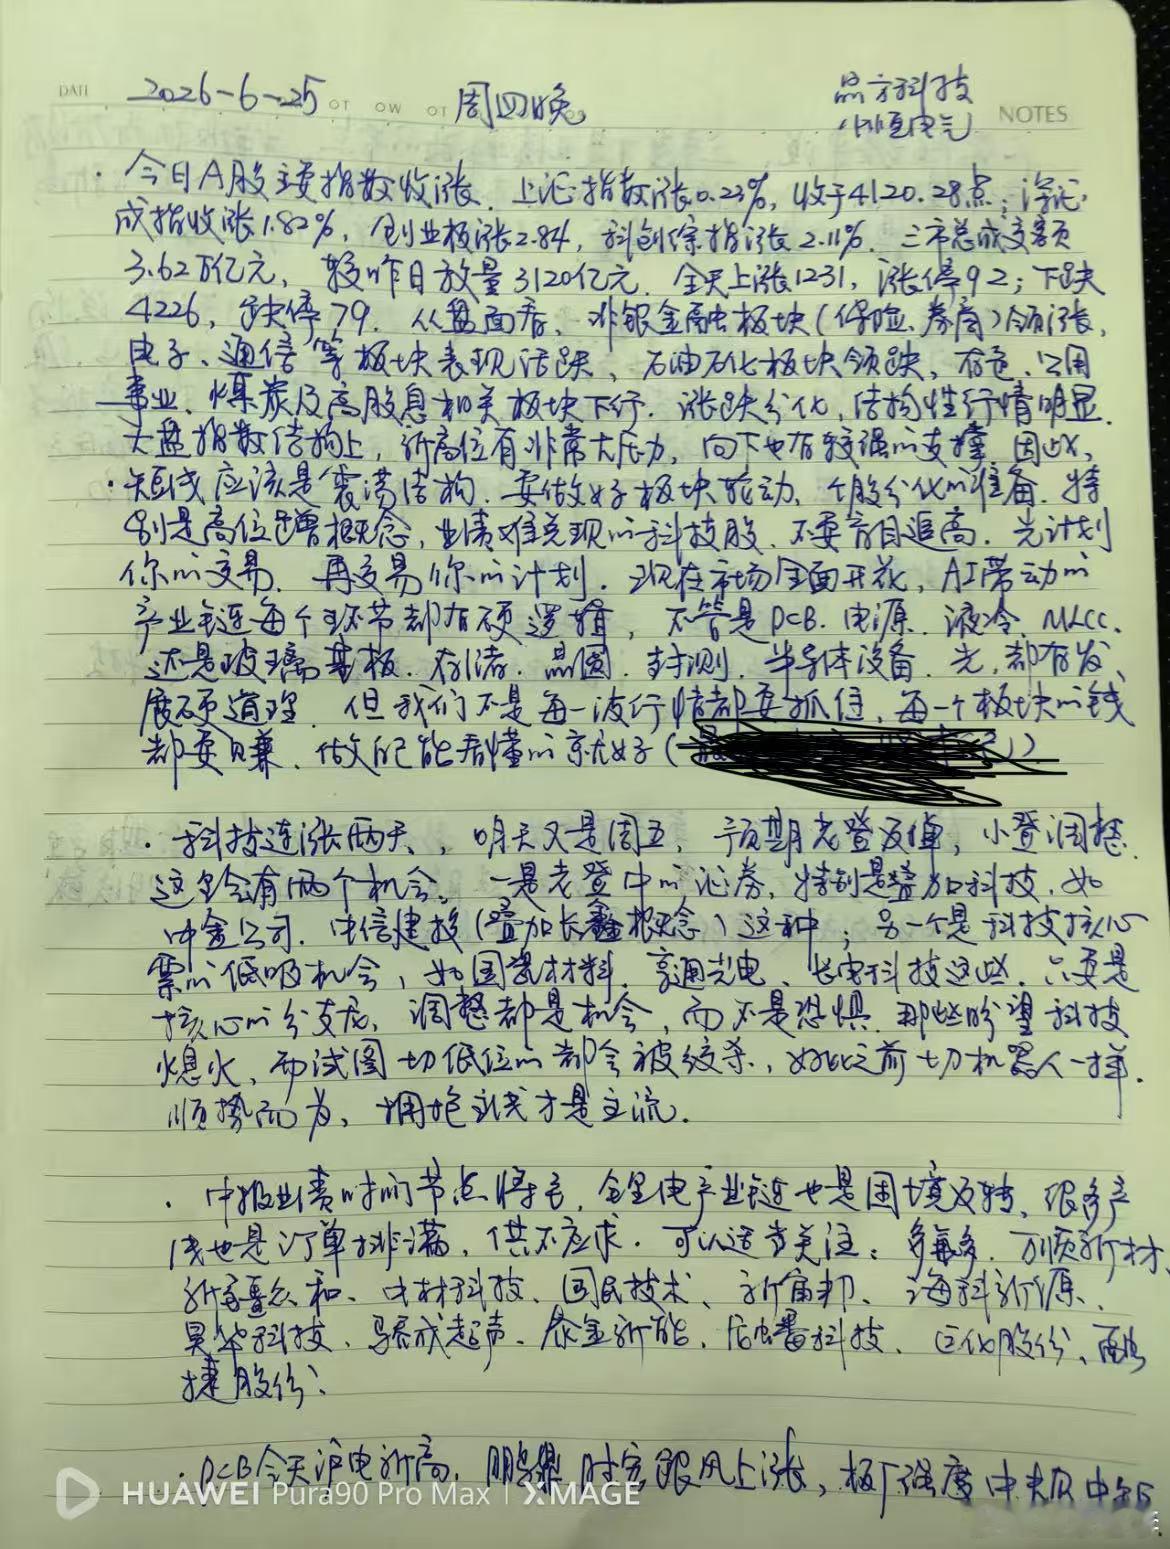 DATE 2026-6-25 周四晚 晶方科技
NOTES
·今日A股主要指数收涨. 上证指数涨0.23%, 收于4120.28点; 深证
成指收涨1.82%, 创业板涨2.84, 科创综指涨2.11%. 三市总成交额
3.62万亿元, 较昨日放量3120亿元. 全天上涨1231, 涨停92; 下跌
4226, 跌停79. 从盘面看、非银金融板块(保险、券商)领涨,
电子、通信等板块表现活跃, 石油石化板块领跌, 有色、公用
事业、煤炭及高股息相关板块下行. 涨跌分化, 结构性行情明显.
大盘指数结构上, 新高位有非常大压力, 向下也有较强的支撑 因此,
·短线应该是震荡结构. 要做好板块轮动, 个股分化的准备. 特
别是高位蹭概念, 业绩难兑现的科技股, 不要盲目追高. 先计划
你的交易, 再交易你的计划. 现在市场全面开花, AI带动的
产业链每个环节都有硬逻辑, 不管是PCB. 电源. 液冷. MLCC.
还是玻璃基板. 存储. 晶圆. 封测. 半导体设备. 光, 都有发
展硬道理. 但我们不是每一波行情都要抓住, 每一个板块的钱
都要赚. 做自己能看懂的就好(
·科技连涨两天, 明天又是周五, 预期老登反弹, 小登调整.
这里会有两个机会, 一是老登中的证券, 特别是叠加科技, 如
中金公司. 中信建投(叠加长鑫概念)这种; 另一个是科技核心
票的低吸机会, 如国瓷材料. 亨通光电、长电科技这些. 只要是
核心的分支龙, 调整都是机会, 而不是恐惧. 那些盼望科技
熄火, 而试图切低位的都会被绞杀, 如此之前切机器人一样.
顺势而为, 拥抱主线才是主流.
·中报业绩时间节点将至, 锂电产业链也是困境反转, 很多产
线也是订单排满, 供不应求. 可以适当关注: 多氟多. 万顺新材、
新疆众和、中材科技、国民技术、新宙邦、海科新源、
昊华科技、嘉元科技、巨化股份、
捷股份、
·PCB今天沪电新高, 鹏鼎 胜宏跟风上涨, 板厂强度中
HUAWEI Pura90 Pro Max | XMAGE